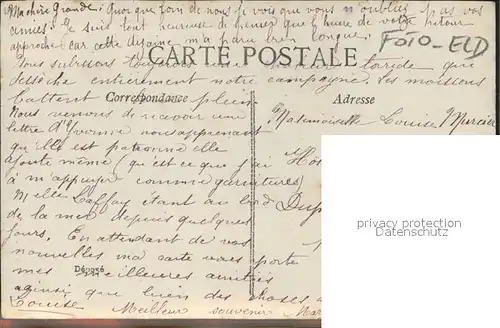 Ma chère grande. Quoique loin de nous je vois que vous n'oubliez pas vos
amies. Je suis tout heureuse de penser que l'heure de votre retour
approche car cette dizaine m'a paru bien longue.
FOTO-ELD
CARTE POSTALE
Nous subissons torride que
dessèche entièrement notre campagne. Les moissons
battent plein
Correspondance
Adresse
Nous venons de recevoir une
lettre d'Yvonne nous apprenant
Mademoiselle Louise Mercier
qu'elle est patronne elle
ajoute même (qu'est ce que j'ai
à m'appuyer comme garnitures)
Melle Caffay étant au bord
de la mer depuis quelques
jours. En attendant de vos
nouvelles ma carte vous porte
Déposé
mes meilleures amitiés
ainsi que bien des choses
Louise
Meilleur souvenir
privacy protection
www.oldthing.de